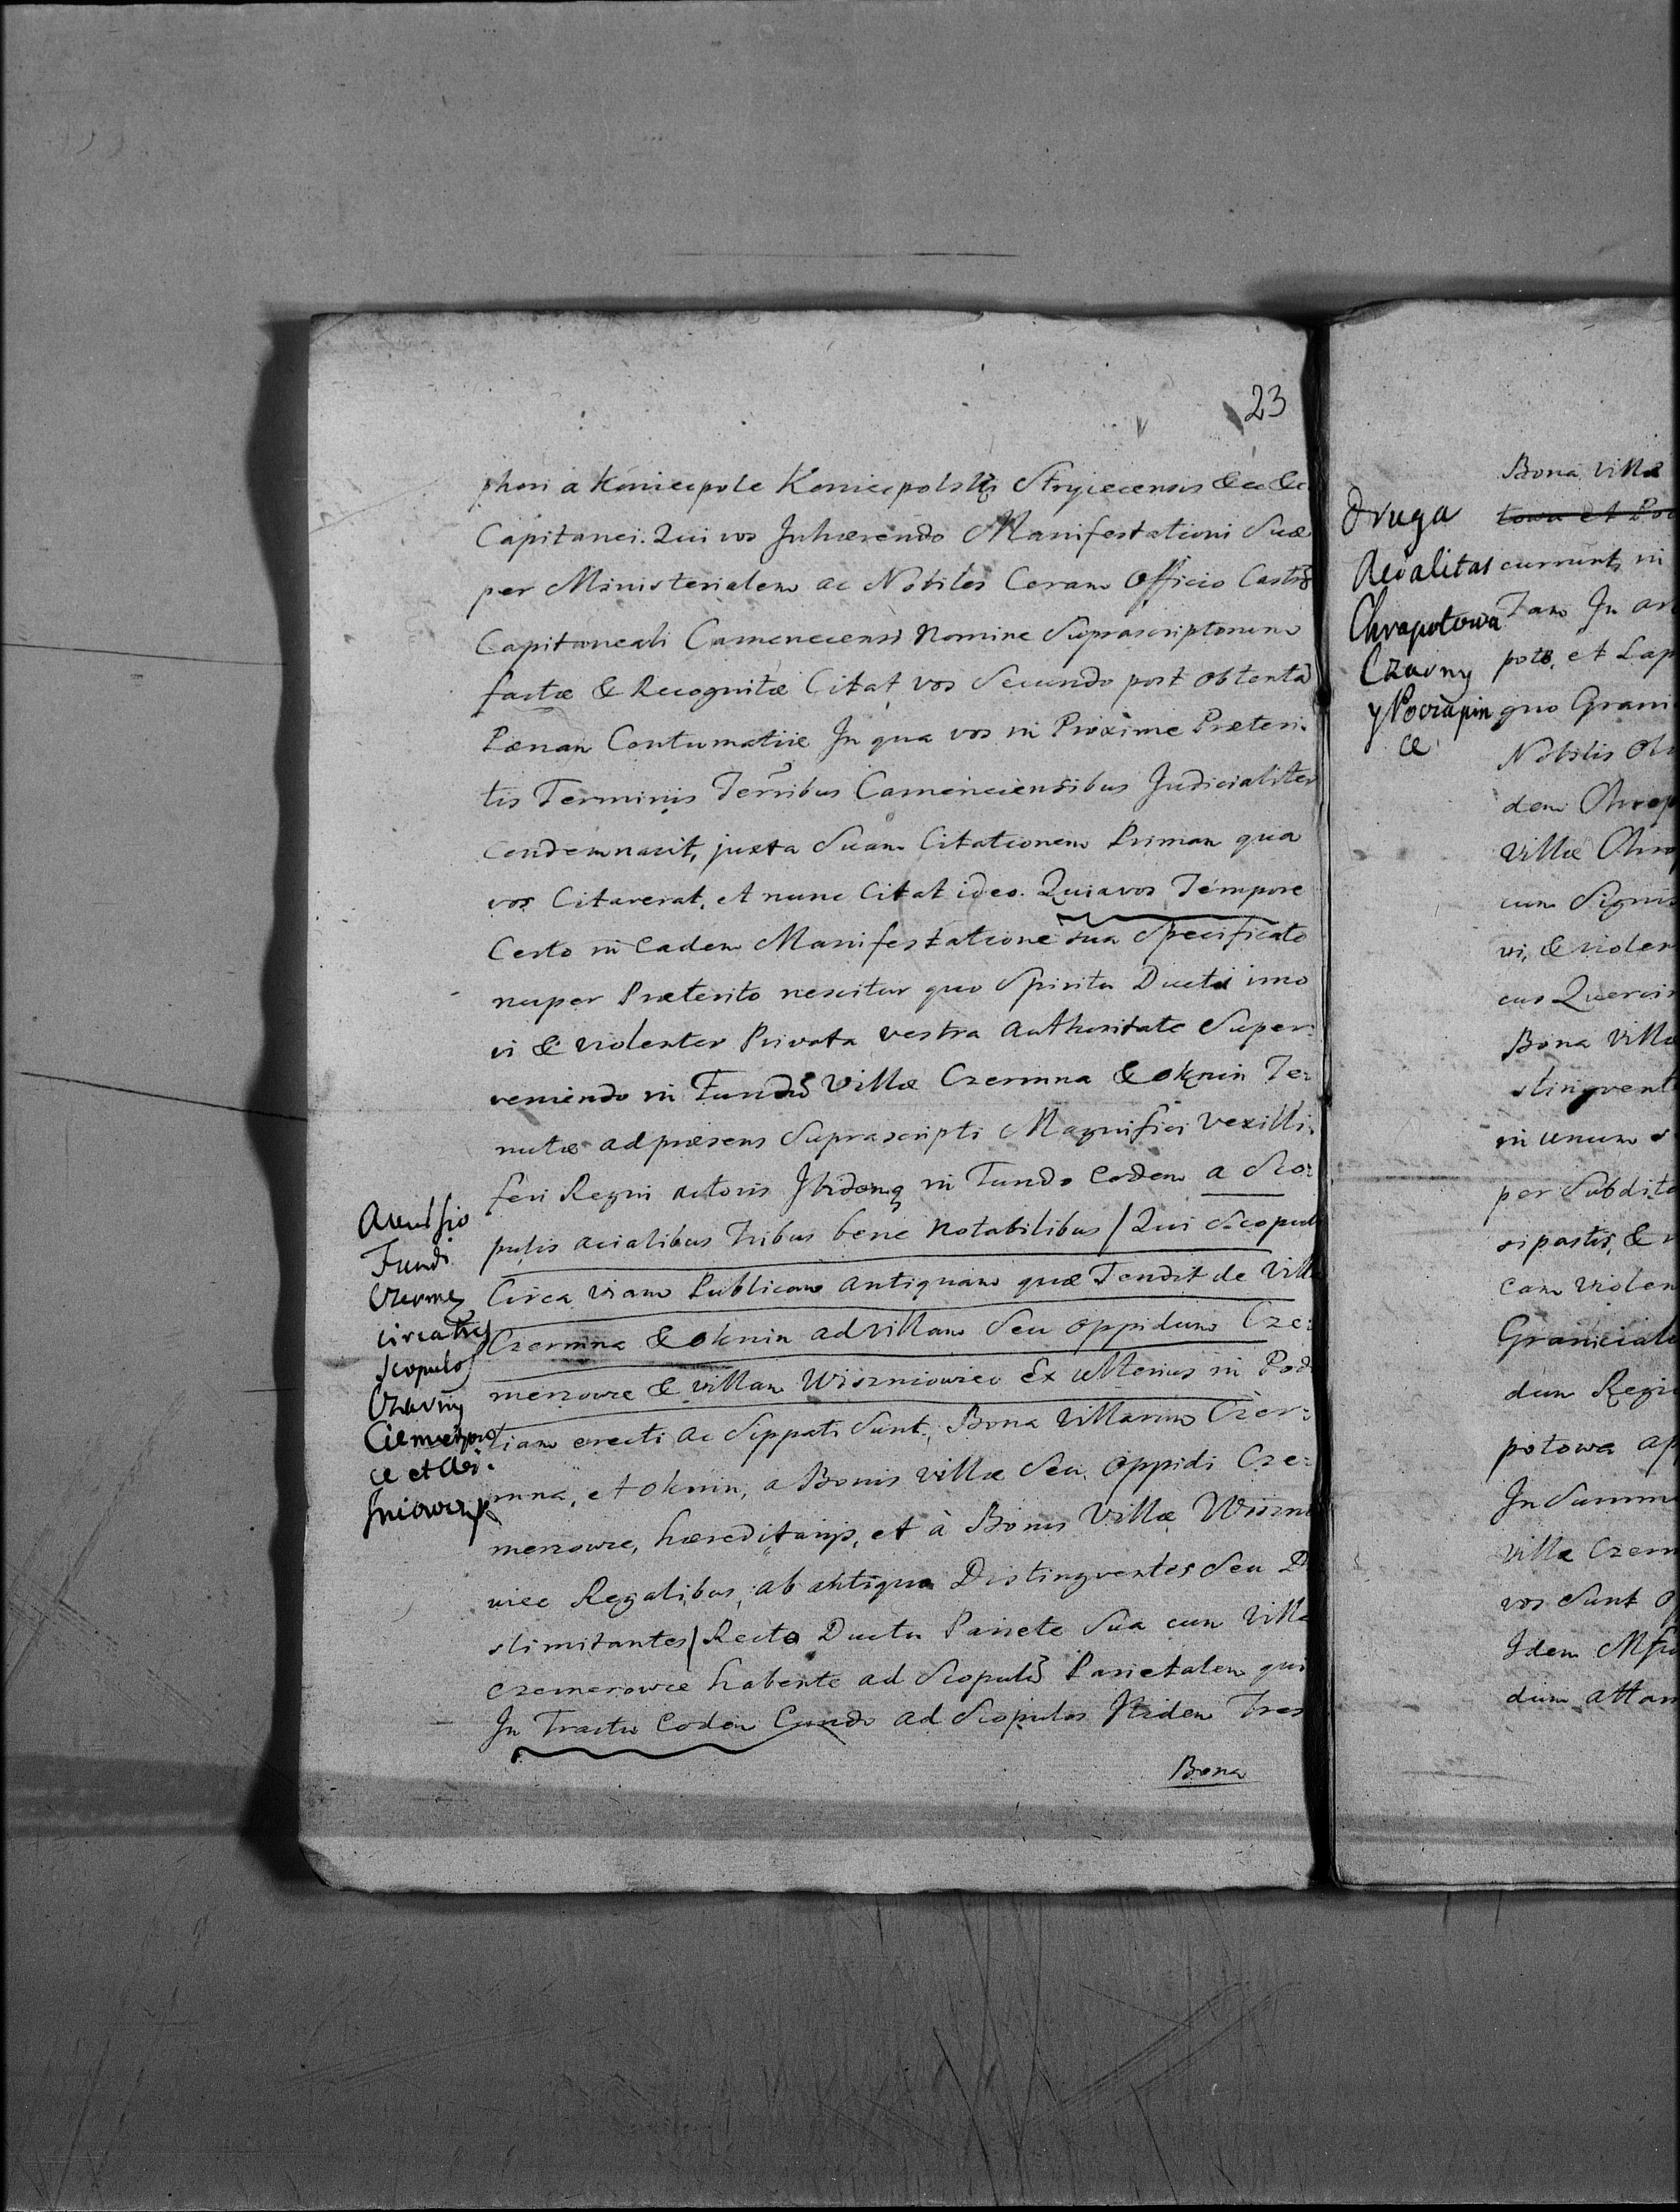 23
phori a Koniecpole Koniecpolski Stryiecensis &c &c
Capitanei. Qui vos Inhærendo Manifestationi Suæ
per Ministerialem ac Nobiles Coram Officio Castr
Capitaneali Camenecensi Nomine Suprascriptorum
factæ & Recognitæ Citat vos Secundo post obtentã
Pænam Contumatiæ In qua vos in Proxime Præteri-
tis Terminis Terribus Camenecensibus Judicialiter
Condemnavit, juxta Suam Citationem Primam qua
vos Citaverat. et nunc Citat ideo. Quia vos Tempore
Certo in eadem Manifestatione sua Specificato
nuper Præterito nescitur quo Spiritu Ducti imo
vi & violenter Privata vestra Authoritate Super-
veniendo in Fundũ Villæ Czermna & oknin Te-
nutæ ad præsens Suprascripti Magnifici Vexilli-
feri Regni Actoris Ibidemq in Fundo Eodem a Sco-
pulis acialibus Tribus bene Notabilibus / Qui Scopuli
Circa viam Publicam antiquam quæ Tendit de Villa
Czermna & oknin ad villam Seu oppidum Cze-
merowce & villam Wiszniowiec Ex ulterius in Podo
liam erecti ac Sippati Sunt, Bona Villarum Czer-
mna, et oknin, a Bonis villæ Seu oppidi Cze-
merowce, hæreditarijs, et à Bonis Villæ Wiszni
wiec Regalibus, ab antiquo Distingventes Seu D
slimitantes / Recto Ductu Pariete Sua cum Villa
czemerowce habente ad Scopulũ Parietalem qui
In Tractu Eodem Eundo ad Scopulos Itidem Tres
Bona
Fundi
Czermney
circa tres
Scopulos
Czarny
Ciemierow
ce et Wi-
sniowczyk
Druga
Acialitas
Chrapotowa
Czarny
y Pocrapin
ce
Bona Villæ
towa et Po
currunt, in
Tam In ar
poto, et Lap
quo Grani
Nobilis Ol
dem Chrop
Villæ Chro
cum Signis
vi, & violen
cus Quercin
Bona Villæ
stingvent
in unum
per Subdito
sipastis, &
cam violen
Graniciale
dum Regi
potowa ap
In Summ
villæ Czerm
vos Sunt
Idem Mfi
dum attam